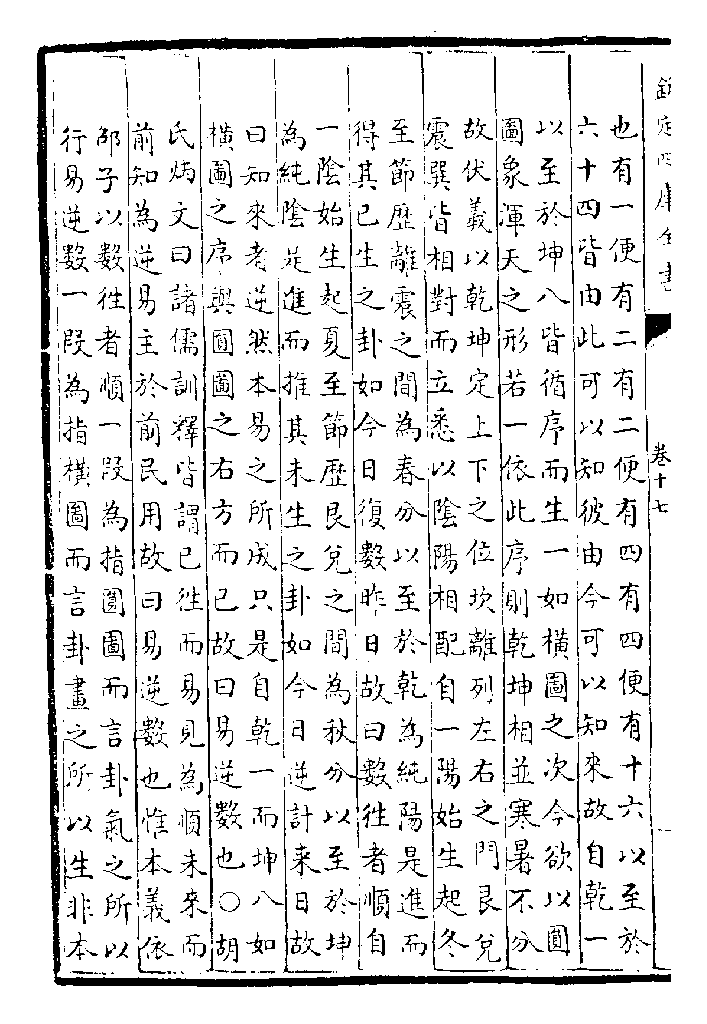 欽定四庫全書
卷十七
也有一便有二有二便有四有四便有十六以至於
六十四皆由此可以知彼由今可以知來故自乾一
以至於坤八皆循序而生一如橫圖之次今欲以圓
圖象渾天之形若一依此序則乾坤相並寒暑不分
故伏羲以乾坤定上下之位坎離列左右之門艮兌
震巽皆相對而立悉以陰陽相配自一陽始生起冬
至節歴離震之間為春分以至於乾為純陽是進而
得其已生之卦如今日復數昨日故曰數徃者順自
一陰始生起夏至節歴艮兌之間為秋分以至於坤
為純陰是進而推其未生之卦如今日逆計来日故
曰知來者逆然本易之所成只是自乾一而坤八如
橫圖之序與圓圖之右方而已故曰易逆數也○胡
氏炳文曰諸儒訓釋皆謂已徃而易見為順未來而
前知為逆易主於前民用故曰易逆數也惟本義依
邵子以數徃者順一段為指圓圖而言卦氣之所以
行易逆數一段為指橫圖而言卦畫之所以生非本